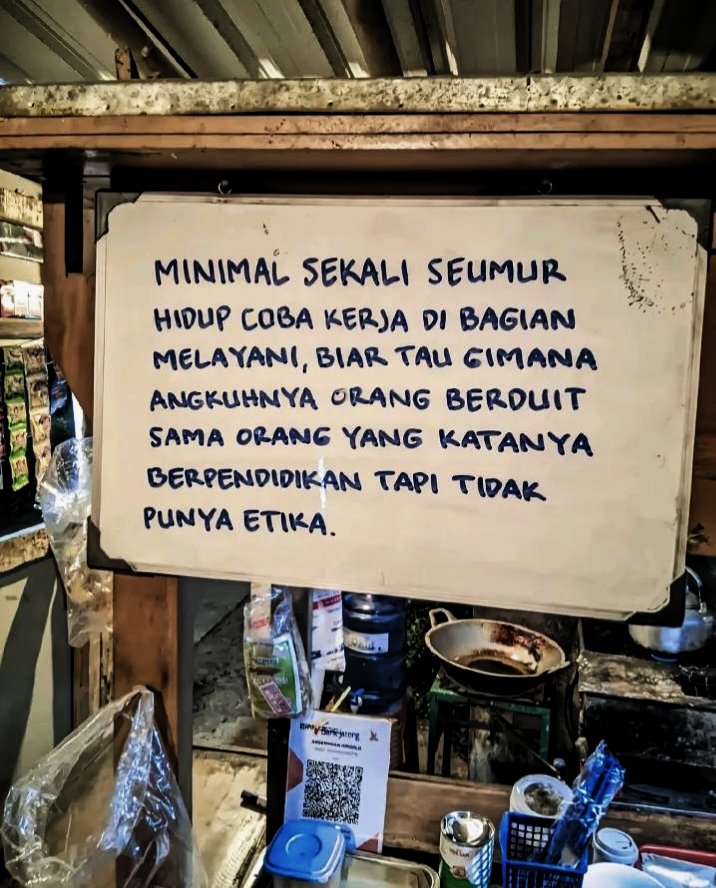 MINIMAL SEKALI SEUMUR
HIDUP COBA KERJA DI BAGIAN
MELAYANI, BIAR TAU GIMANA
ANGKUHNYA ORANG BERDUIT
SAMA ORANG YANG KATANYA
BERPENDIDIKAN TAPI TIDAK
PUNYA ETIKA.